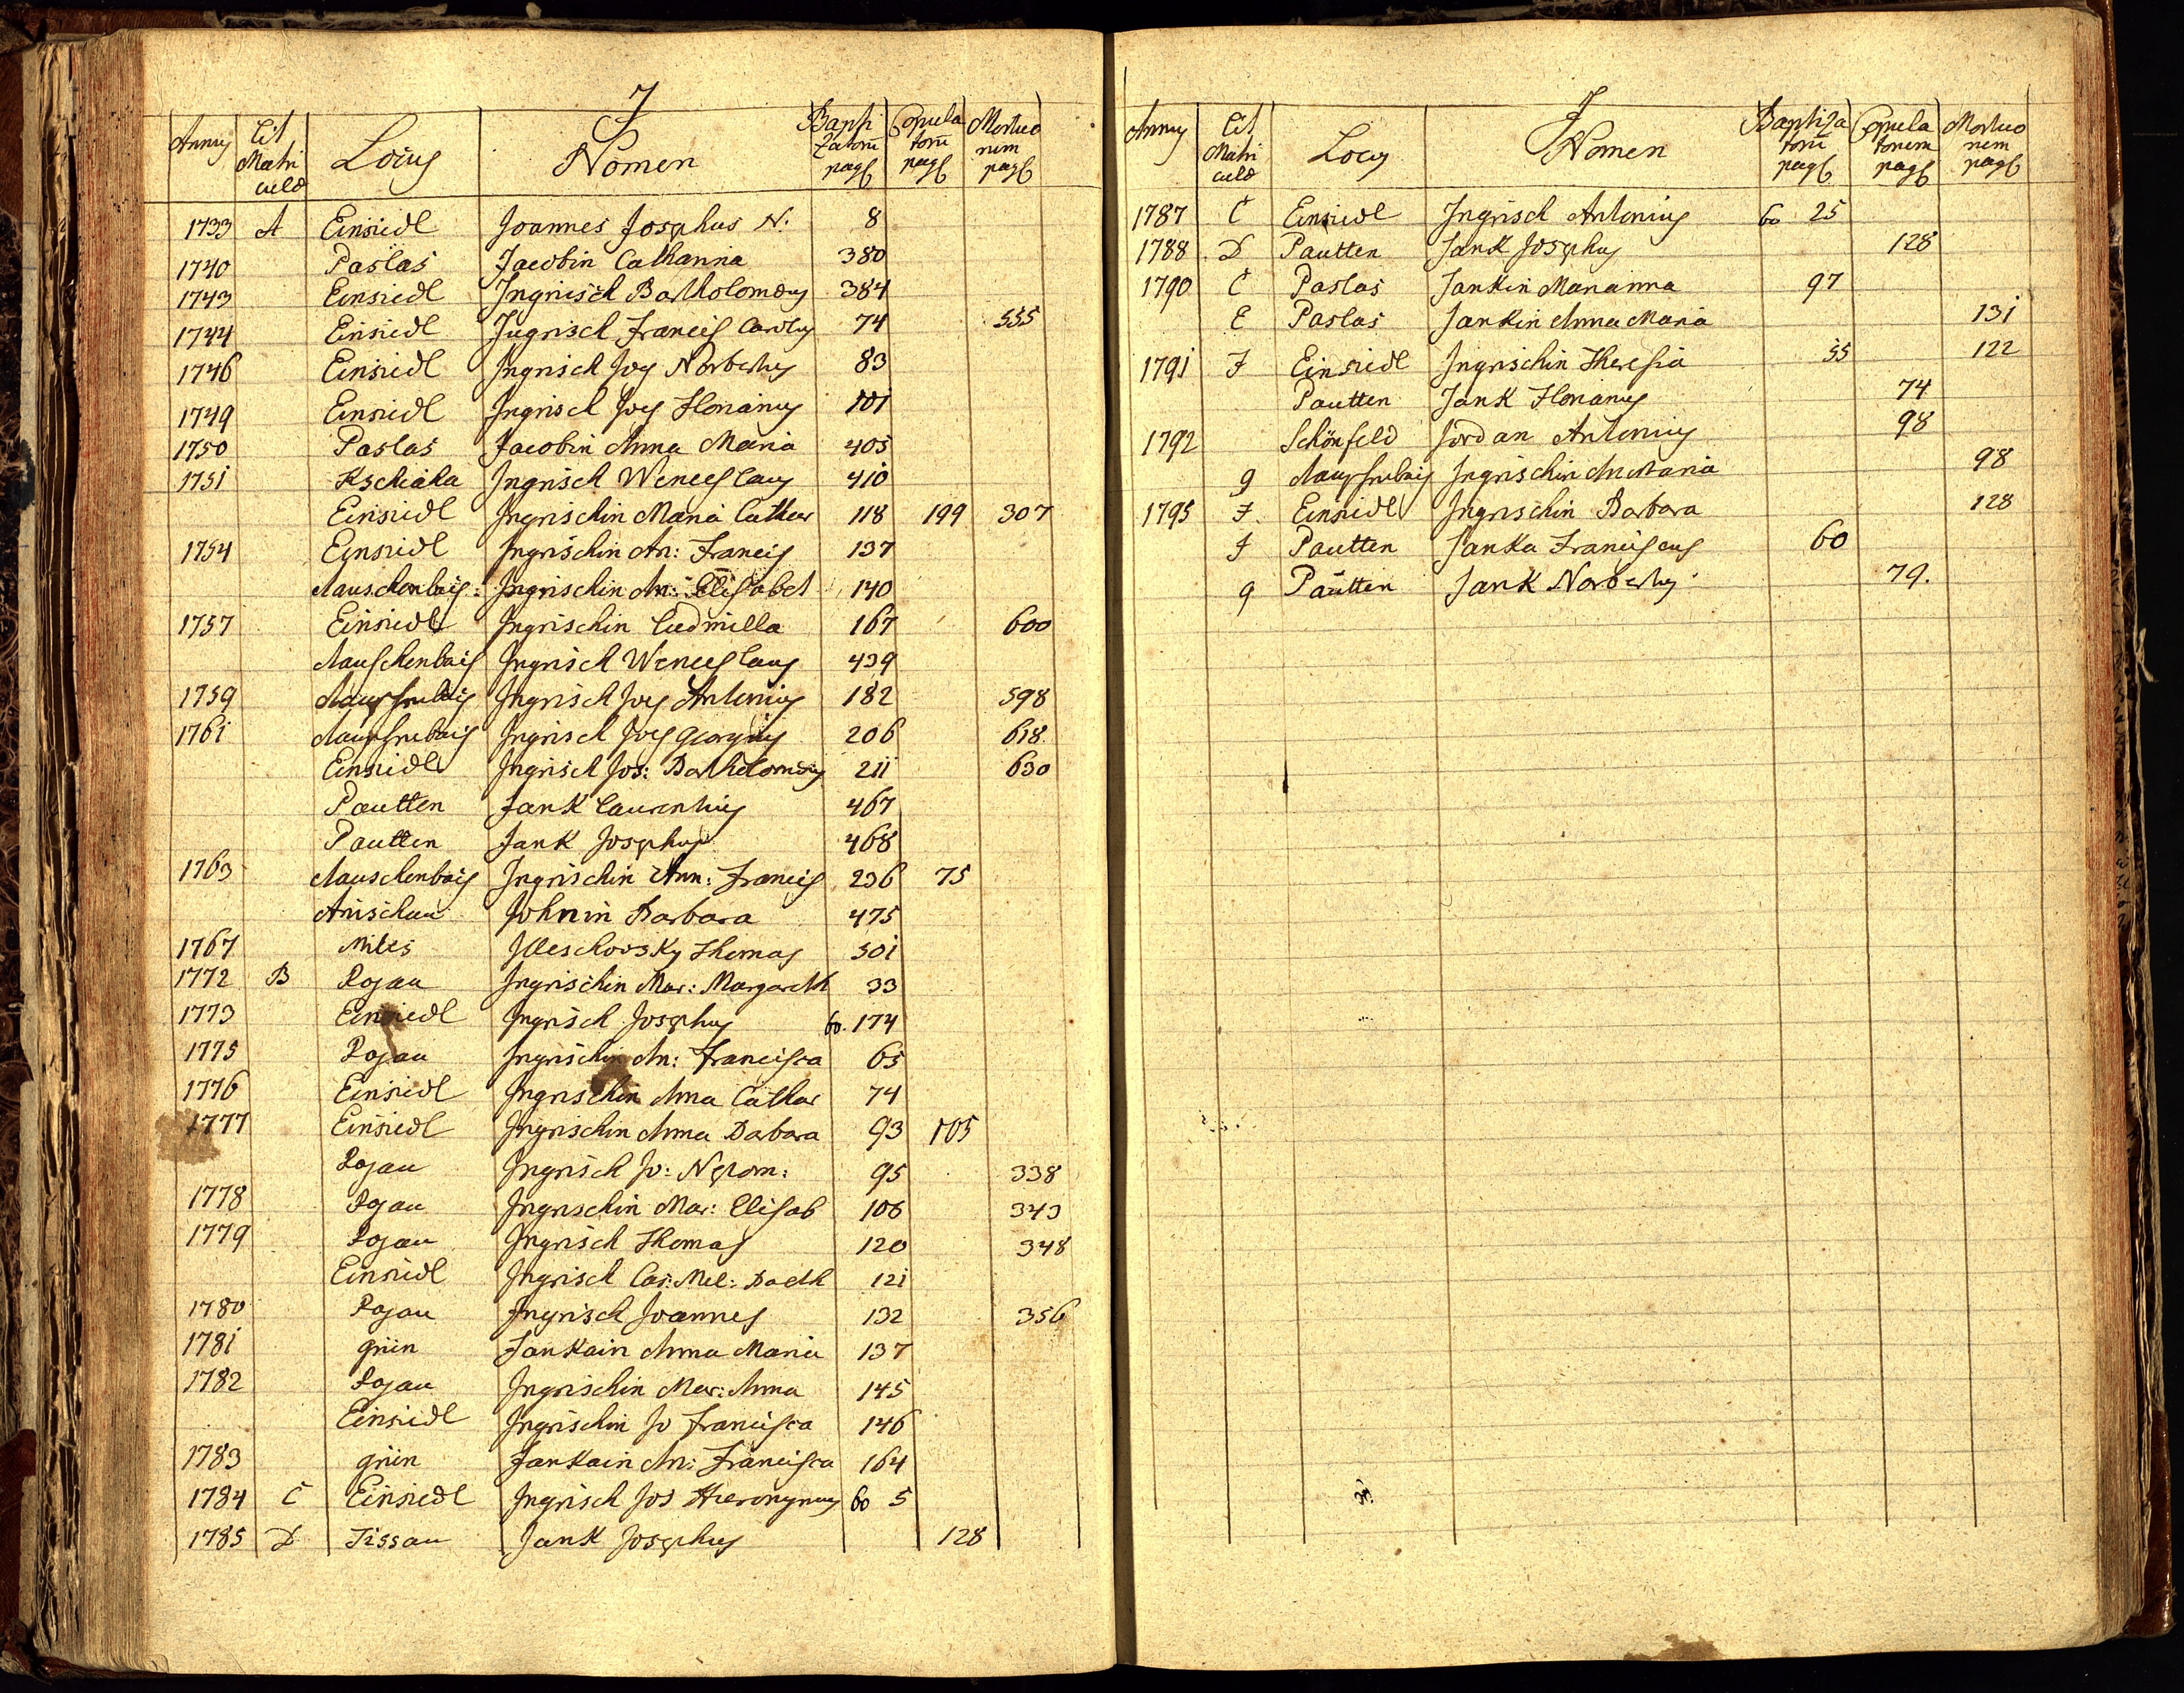 J
Annus Lit Matriculæ Locus Nomen Baptizatorũ pags Copulatorũ pags Mortuorum pags
1733 A Einsiedl Joannes Josephus N. 8
1740 Paslas Jacobin Catharina 380
1743 Einsiedl Ingrisch Bartholomæus 384
1744 Einsiedl Ingrisch Francis Carolus 74 555
1746 Einsiedl Ingrisch Jos Norbertus 83
1749 Einsiedl Ingrisch Jos Florianus 101
1750 Paslas Jacobin Anna Maria 405
1751 Kschiaha Ingrisch Wenceslaus 410
Einsiedl Ingrischin Maria Cathar 118 199 307
1754 Einsiedl Ingrischin An: Francis 137
Mauschenbais: Ingrischin An: Elisabet 140
1757 Einsiedl Ingrischin Ludmilla 167 600
Mauschenbais Ingrisch Wenceslaus 439
1759 Ingrisch Jos Antonius 182 598
1761 Ingrisch Jos Georgius 206 618
Einsiedl Ingrisch Jos: Bartholomæus 211 630
Pautten Jank Laurentius 467
Pautten Jank Josephus 468
1763 Mauschenbais Ingrischin Ann: Francis 236 75
Anischau Johnin Barbara 475
1767 Miles Jlleschovsky Thomas 501
1772 B Rojau Ingrischin Mar: Margareth 33
1773 Einsiedl Ingrisch Josephus 60. 174
1775 Rojau Ingrischin An: Francisca 65
1776 Einsiedl Ingrischin Anna Cathar 74
1777 Einsiedl Ingrischin Anna Barbara 93 105
Rojau Ingrisch Jo: Nepom: 95 338
1778 Rojau Ingrischin Mar: Elisab 106 343
1779 Rojau Ingrisch Thomas 120 348
Einsiedl Ingrisch Cas: Mel: 121
1780 Rojau Ingrisch Joannes 132 356
1781 grün Jankain Anna Maria 137
1782 Rojau Ingrischin Mar: Anna 145
Einsiedl Ingrischin Jo Francisca 146
1783 grün Jankain An: Francisca 164
1784 C Einsiedl Ingrisch Jos Hieronymus 60 5
1785 D Tissau Jank Josephus 128
J
Annus Lit Matriculæ Locus Nomen Baptizatorũ pags Copulatorum pags Mortuorum pags
1787 C Einsiedl Ingrisch Antonius 60 25
1788 D Pautten Jank Josephus 128
1790 C Paslas Jankin Marianna 97
E Paslas Jankin Anna Maria 131
1791 F Einsiedl Ingrischin Theresia 55 122
Pautten Jank Florianus 74
1792 Schönfeld Jordan Antonius 98
g Ingrischin An Maria 98
1795 F. Einsiedl Ingrischin Barbara 128
F Pautten Janka Franciscus 60
g Pautten Jank Norbertus 79.